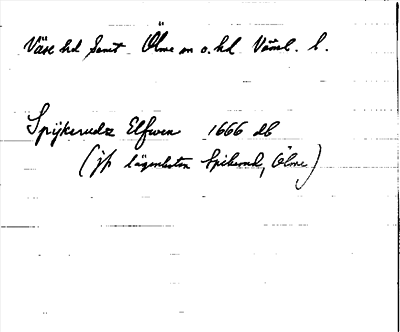 Väse hd Samt Ölme sn o. hd Värml. l.
Spijkerudz Elfwen 1666 db
(jfr lägenheten Spikerud, Ölme)